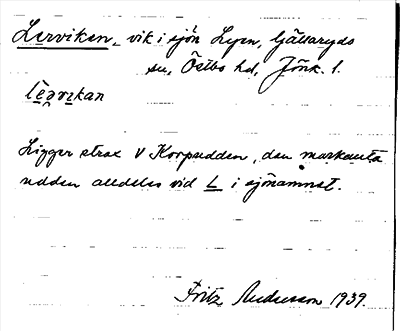 Lerviken, vik i sjön Lyen, Gällaryds
sn, Östbo hd, Jönk. l.
Ligger strax V Korpudden, den markanta
udden alldeles vid L i sjönamnet.
Fritz Andersson 1939.